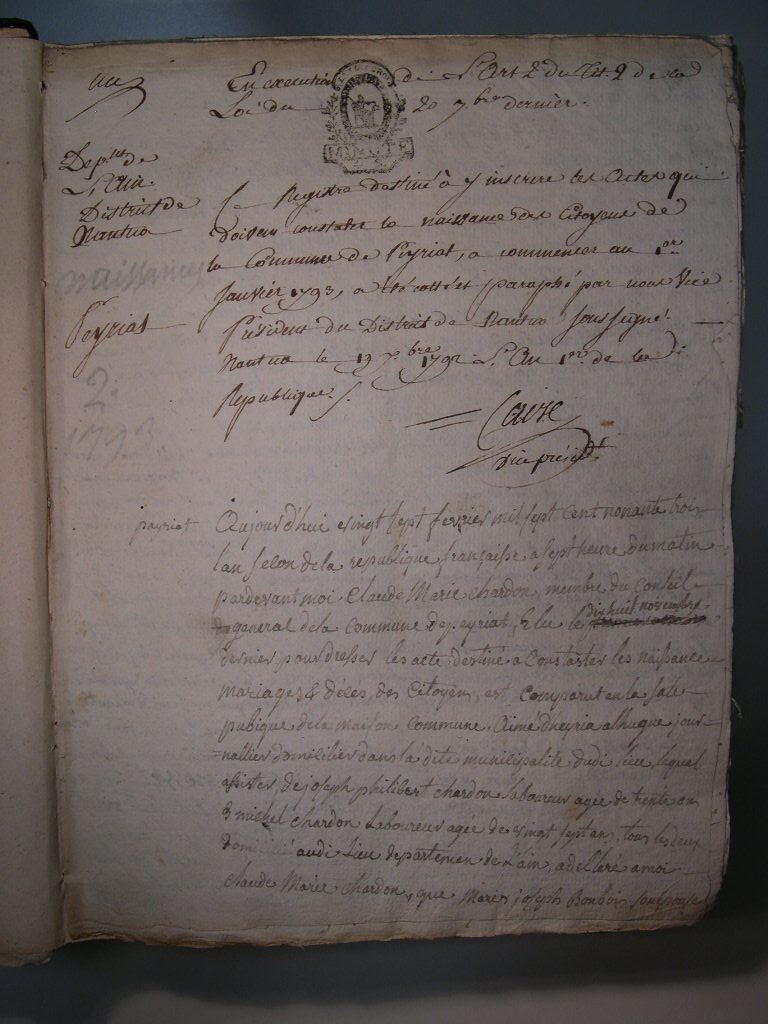 En execution de L'Art 2 du tit 2 de la
Loi du 20 7bre dernier.
Dept de
L'Ain.
District de
Nantua
Ce Registre destiné à y inscrire les Actes qui
doivent constater la naissance des Citoyens de
la Commune de Peyriat, a commencer au 1er
Janvier 1793, a été cotté et paraphé par nous Vice
Président du District de Nantua soussigné.
Nantua le 1792 L'An 1er de la
Republique.
vice présidt
naissances
Peyriat
2.
1793
peyriat
Aujourd'huie vingt sept fevrier mil sept cent nonante trois
lan selon de la republique française a sept heure du matin
pardevant moi Claude Marie Chardon, membre du Conseil
general de la Commune de peyriat, Elu le dix huit novembre
dernier pour dresser les acte destiné a Constater les naissance
mariages & décés, des Citoyens, est comparut en la sale
publique de la maison commune. Aimé jour=
=nallier domicilier dans la dite municipalité dudi lieu, lequel
assister de joseph philibert chardon laboureur agée de trente an
& michel chardon Laboureur agée de vingt sept an, tous les deux
domicilié audi Lieu departemen de l'ain, a déllaré a moi
Claude Marie chardon, que Marie joseph son épouse